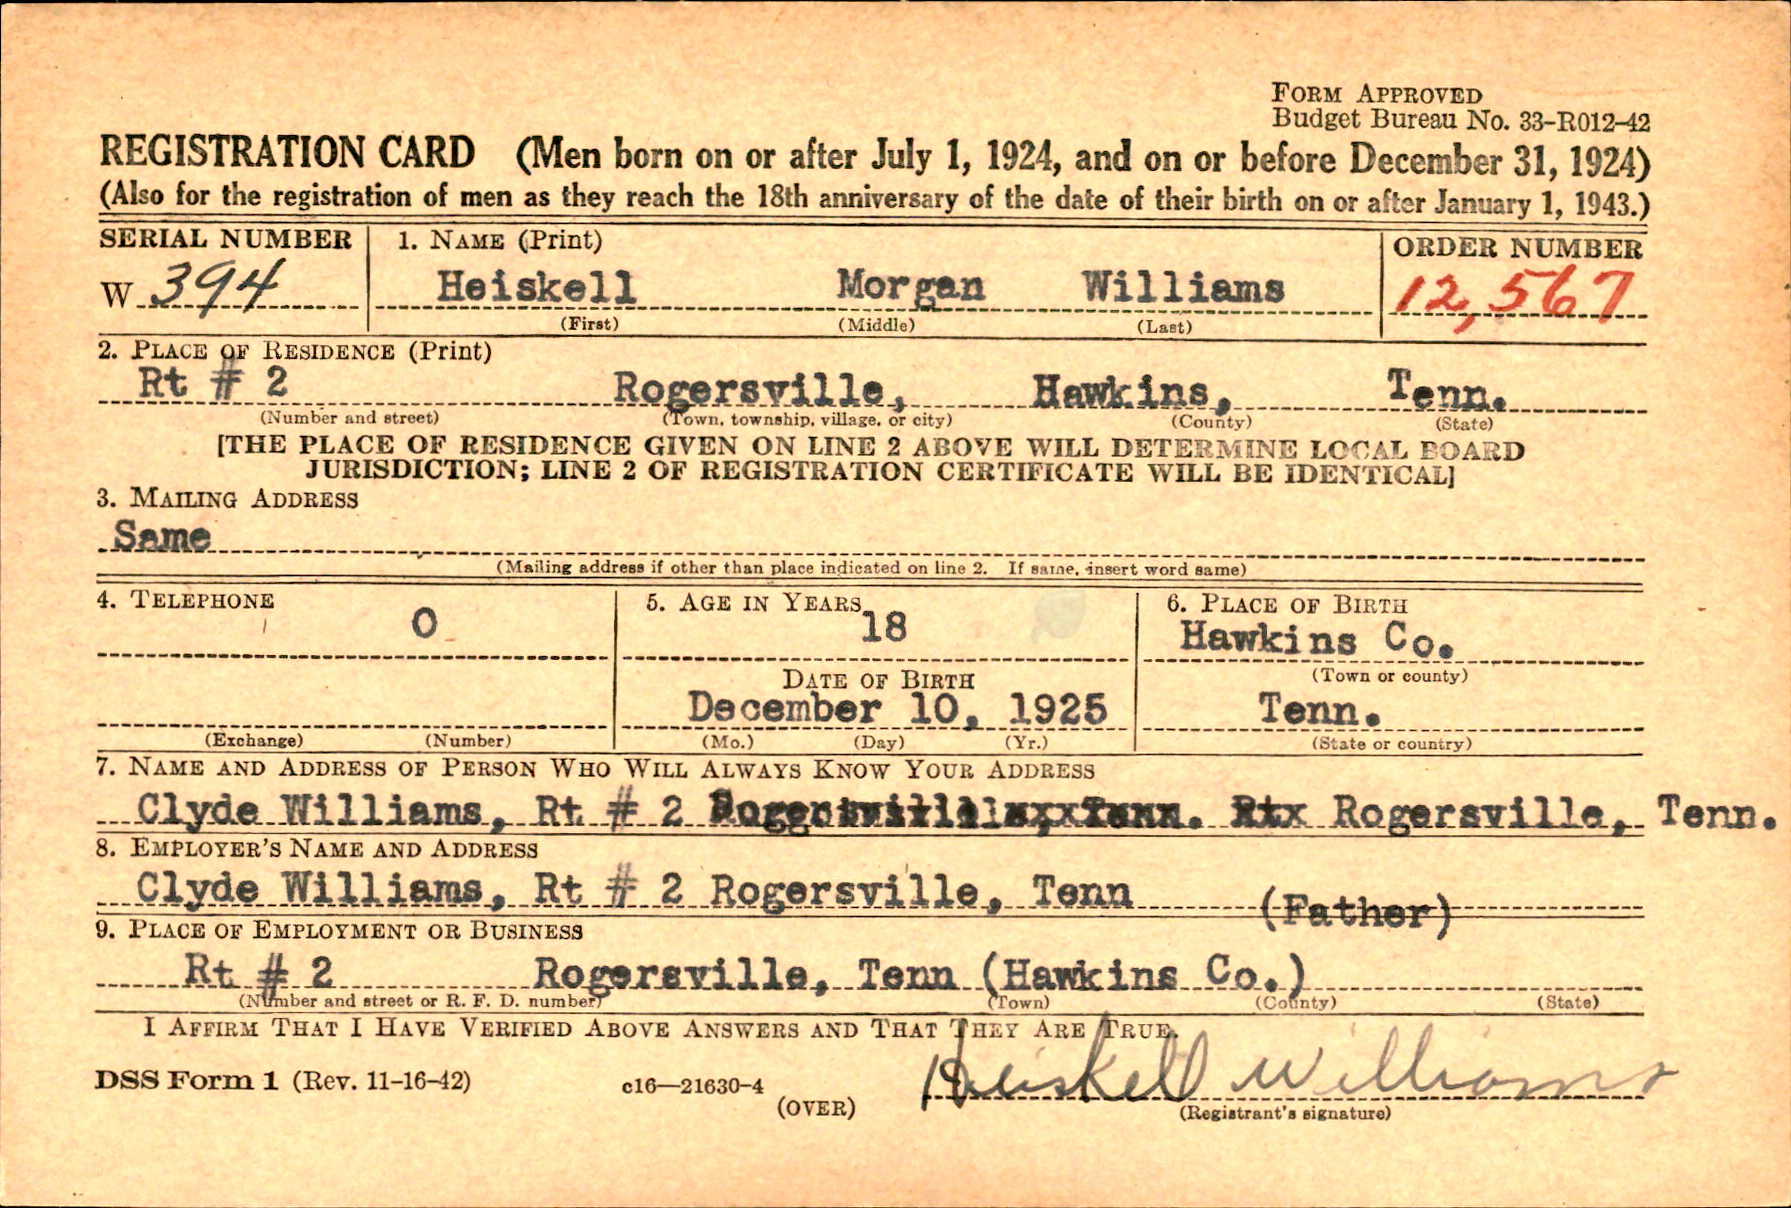 FORM APPROVED
Budget Bureau No. 33-R012-42
REGISTRATION CARD (Men born on or after July 1, 1924, and on or before December 31, 1924)
(Also for the registration of men as they reach the 18th anniversary of the date of their birth on or after January 1, 1943.)
SERIAL NUMBER 1. NAME (Print) ORDER NUMBER
W 394 Heiskell Morgan Williams 12,567
(First) (Middle) (Last)
2. PLACE OF RESIDENCE (Print)
Rt # 2 Rogersville, Hawkins, Tenn.
(Number and street) (Town, township, village, or city) (County) (State)
[THE PLACE OF RESIDENCE GIVEN ON LINE 2 ABOVE WILL DETERMINE LOCAL BOARD
JURISDICTION; LINE 2 OF REGISTRATION CERTIFICATE WILL BE IDENTICAL]
3. MAILING ADDRESS
Same
(Mailing address if other than place indicated on line 2. If same, insert word same)
4. TELEPHONE 5. AGE IN YEARS 6. PLACE OF BIRTH
0 18 Hawkins Co.
(Town or county)
DATE OF BIRTH
December 10, 1925 Tenn.
(Exchange) (Number) (Mo.) (Day) (Yr.) (State or country)
7. NAME AND ADDRESS OF PERSON WHO WILL ALWAYS KNOW YOUR ADDRESS
Clyde Williams, Rt # 2 Rogersville, Tenn.
8. EMPLOYER'S NAME AND ADDRESS
Clyde Williams, Rt # 2 Rogersville, Tenn (Father)
9. PLACE OF EMPLOYMENT OR BUSINESS
Rt # 2 Rogersville, Tenn (Hawkins Co.)
(Number and street or R. F. D. number) (Town) (County) (State)
I AFFIRM THAT I HAVE VERIFIED ABOVE ANSWERS AND THAT THEY ARE TRUE.
DSS Form 1 (Rev. 11-16-42) c16—21630-4 Heiskell Williams
(OVER) (Registrant's signature)